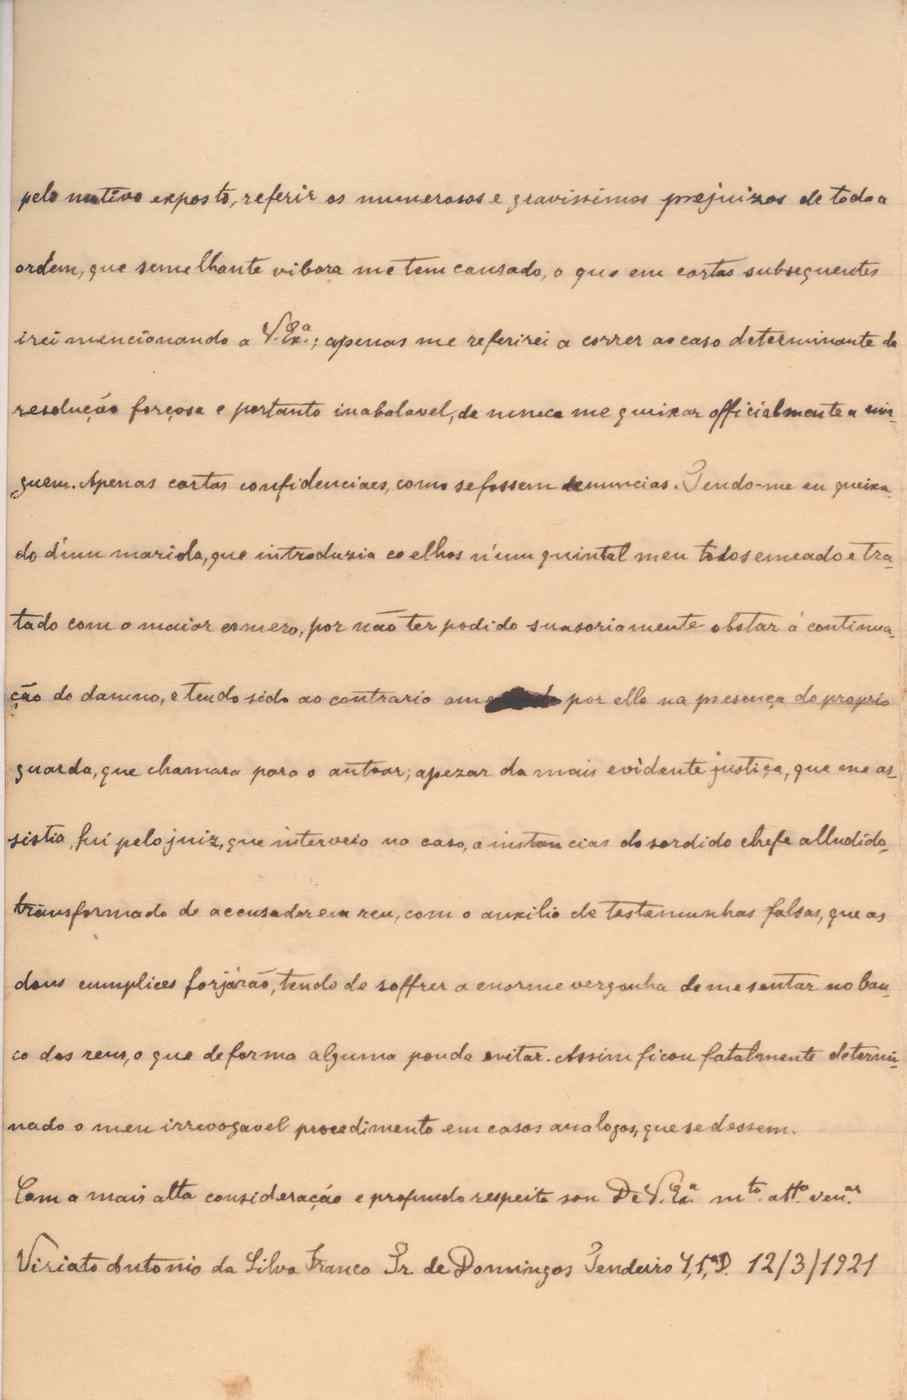 pelo motivo exposto, referir os numerosos e gravissimos prejuizos de toda a
ordem, que semelhante vibora me tem causado, o que em cartas subsequentes
irei mencionando a V. Exª.; apenas me referirei a correr ao caso determinante da
resolução forçosa e portanto inabalavel, de nunca me queixar officialmente a nin-
guem. Apenas cartas confidenciaes, como se fossem denuncias. Tendo-me eu queixa-
do d'um mariola, que introduzia coelhos n'um quintal meu todo semeado e tra-
tado com o maior esmero, por não ter podido suasoriamente obstar á continua-
ção do damno, e tendo sido ao contrario por elle na presença do proprio
guarda, que chamara para o autoar; apezar da mais evidente justiça, que me as-
sistia, fui pelo juiz, que interveio no caso, a instancias do sordido chefe alludido,
transformado de accusador em reu, com o auxilio de testemunhas falsas, que os
dous cumplices forjárão, tendo de soffrer a enorme vergonha de me sentar no ban-
co dos reus, o que de forma alguma poude evitar. Assim ficou fatalmente determi-
nado o meu irrevogavel procedimento em casos analogos, que se dessem.
Com a mais alta consideração e profundo respeito sou De V. Exª. mto. atto. venor.
Viriato Antonio da Silva Franco Tr. de Domingos Tendeiro 7, 1º, D. 12/3/1921